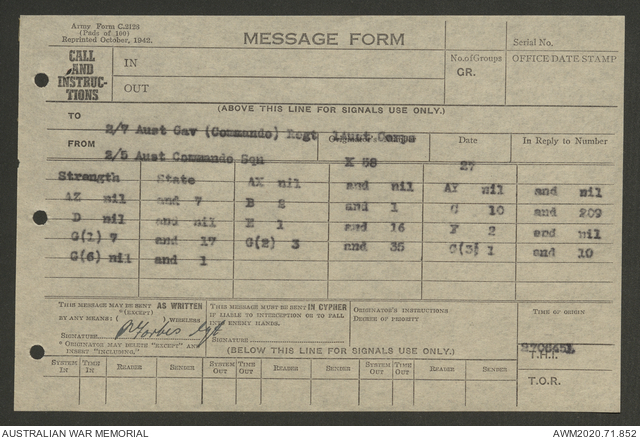 Army Form C.2128
(Pads of 100)
Reprinted October, 1942.
MESSAGE FORM
Serial No.
CALL AND INSTRUCTIONS
IN
OUT
No. of Groups
GR.
OFFICE DATE STAMP
(ABOVE THIS LINE FOR SIGNALS USE ONLY.)
TO
2/7 Aust Cav (Commando) Regt 1 Aust Corps
FROM
Date
In Reply to Number
2/5 Aust Commando Sqn K 58 27
Strength State AX nil and nil AY nil and nil
AZ nil and 7 B 2 and 1 C 10 and 209
D nil and nil E 1 and 16 F 2 and nil
G(1) 7 and 17 G(2) 3 and 35 G(3) 1 and 10
G(6) nil and 1
THIS MESSAGE MAY BE SENT AS WRITTEN
(EXCEPT)
BY ANY MEANS: ( ) WIRELESS
SIGNATURE P Forbes
* ORIGINATOR MAY DELETE "EXCEPT" AND
INSERT "INCLUDING."
THIS MESSAGE MUST BE SENT IN CYPHER
IF LIABLE TO INTERCEPTION OR TO FALL
INTO ENEMY HANDS.
SIGNATURE
ORIGINATOR'S INSTRUCTIONS
DEGREE OF PRIORITY
TIME OF ORIGIN
(BELOW THIS LINE FOR SIGNALS USE ONLY.)
T.H.I.
T.O.R.
SYSTEM IN TIME IN READER SENDER SYSTEM OUT TIME OUT READER SENDER SYSTEM OUT TIME OUT READER SENDER
AUSTRALIAN WAR MEMORIAL
AWM2020.71.852